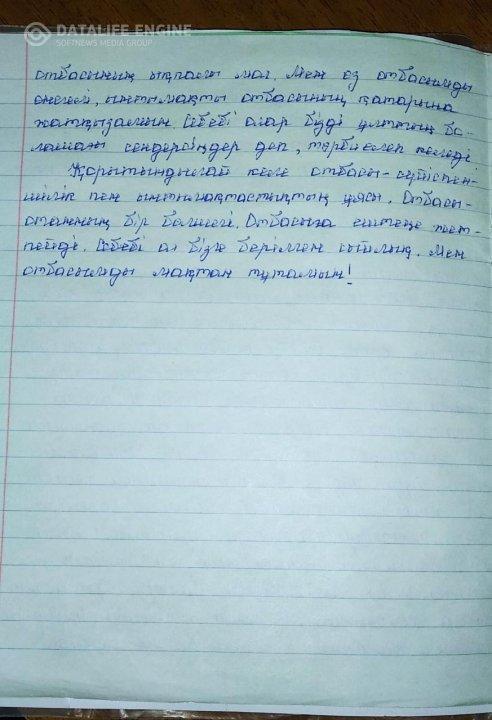 DATALIFE ENGINE
SOFTNEWS MEDIA GROUP
отбасының ықпалы мол. Мен өз отбасымды
өнегелі, ынтымақты отбасының қатарына
жатқызамын. Себебі олар бізді ұлттың бо-
лашағы сендерсіңдер деп, тәрбиелеп келеді
Қорытындылай келе отбасы-сүйіспен-
шілік пен ынтымақтастықтың ұясы. Отбасы-
отанның бір бөлшегі. Отбасыға ештеңе жет-
пейді. Себебі ол бізге берілген сыйлық. Мен
отбасымды мақтан тұтамын!